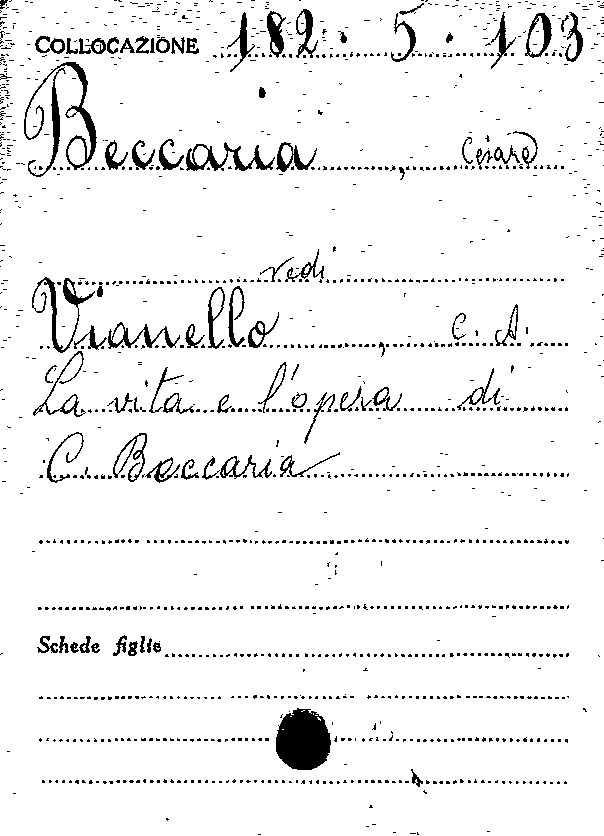 COLLOCAZIONE 182. 5. 103
Beccaria, Cesare
vedi
Vianello, C. A.
La vita e l'opera di
C. Beccaria
Schede figlie